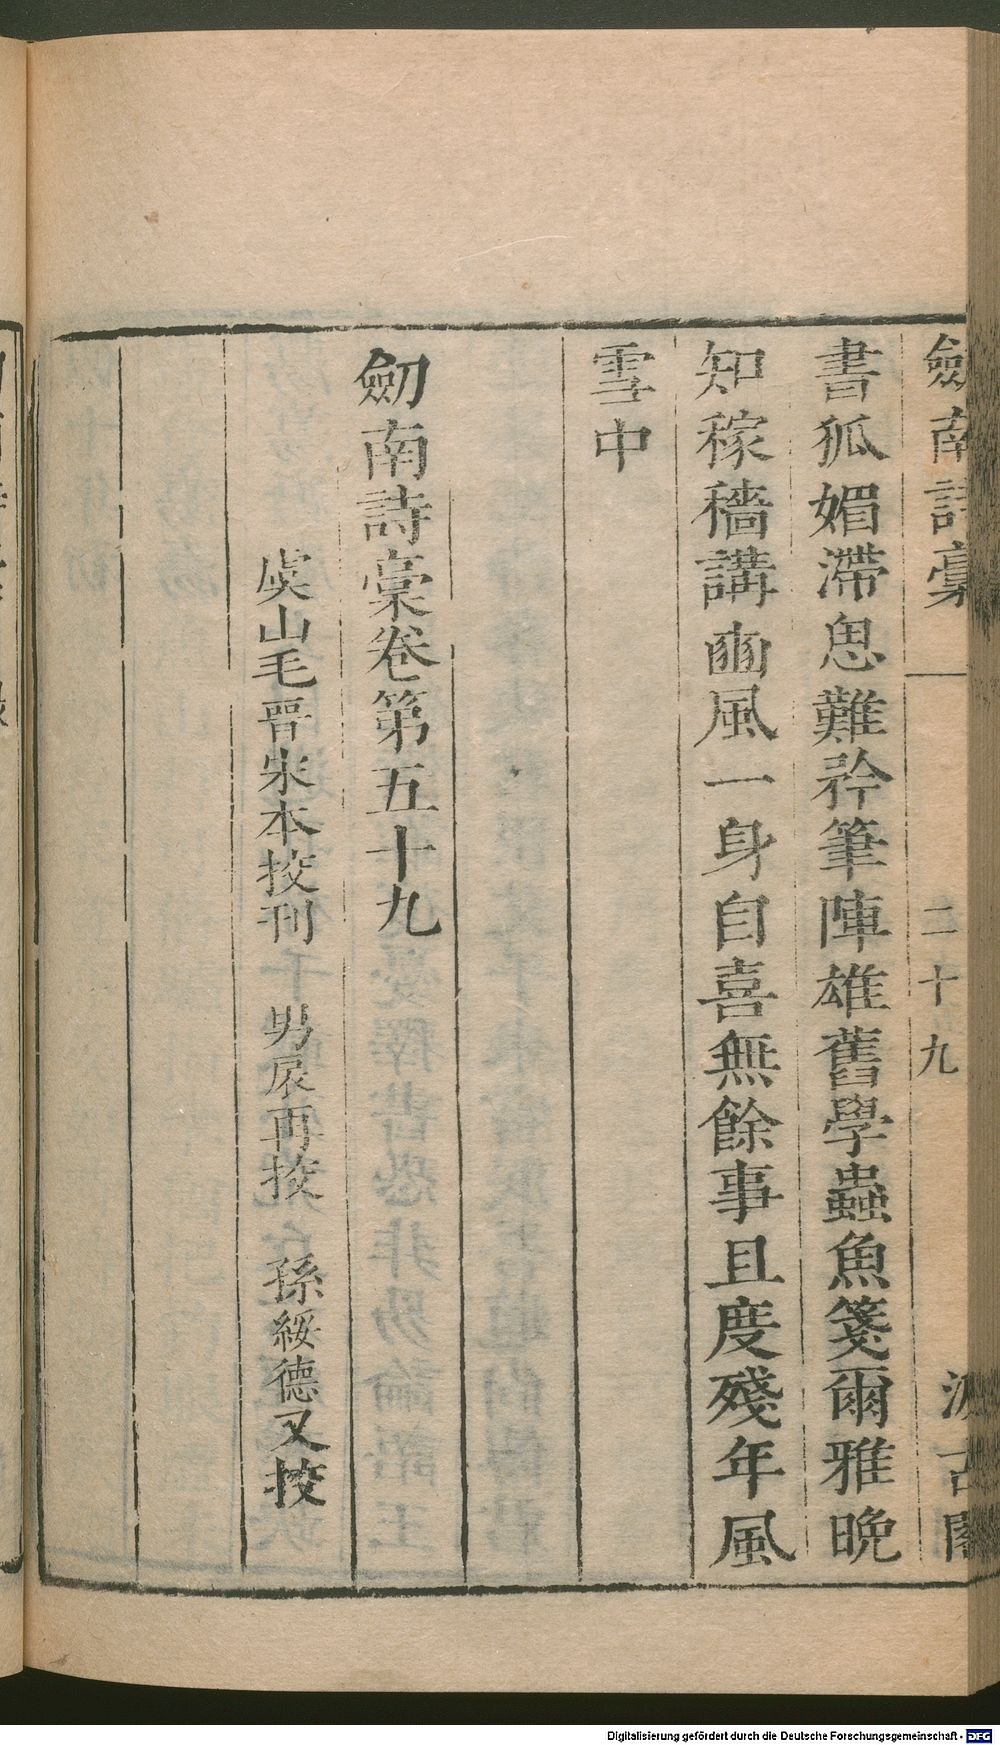 劔南詩稾 二十九 汲古閣
書狐媚滯思難矜筆陣雄舊學蟲魚箋爾雅晚
知稼穡講豳風一身自喜無餘事且度殘年風
雪中
劔南詩稾卷第五十九
虞山毛晉宋本挍刊 男扆再挍 孫綏德又挍
Digitalisierung gefördert durch die Deutsche Forschungsgemeinschaft - DFG